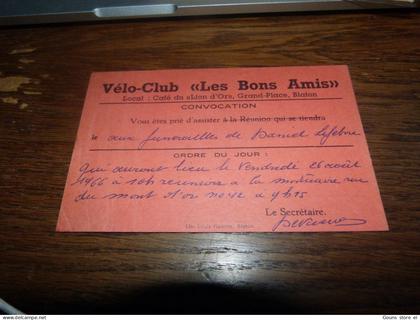 Vélo-Club «Les Bons Amis»
Local : Café du «Lion d'Or», Grand-Place, Blaton
CONVOCATION
Vous êtes prié d'assister à la Réunion qui se tiendra
le aux funérailles de Daniel Lefebvre
ORDRE DU JOUR :
qui auront lieu le Vendredi 26 août
1966 à 10h réunion à la mortuaire rue
du mont d'or no 42 à 9h15
Le Secrétaire,
Imp. Louis Blaton